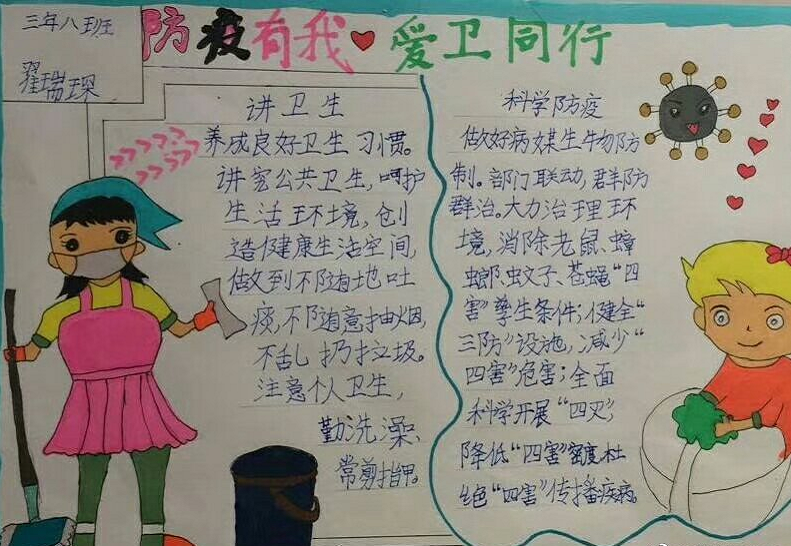 三年八班
翟瑞琛
防疫有我 爱卫同行
讲卫生
养成良好卫生习惯。
讲究公共卫生,呵护
生活环境,创
造健康生活空间,
做到不随地吐
痰,不随意抽烟,
不乱扔垃圾。
注意个人卫生,
勤洗澡、
常剪指甲。
科学防疫
做好病媒生物防
制。部门联动,群防
群治。大力治理环
境,消除老鼠、蟑
螂、蚊子、苍蝇“四
害”孳生条件;健全“
三防”设施,减少“
四害”危害;全面
科学开展“四灭”,
降低“四害”密度,杜
绝“四害”传播疾病。